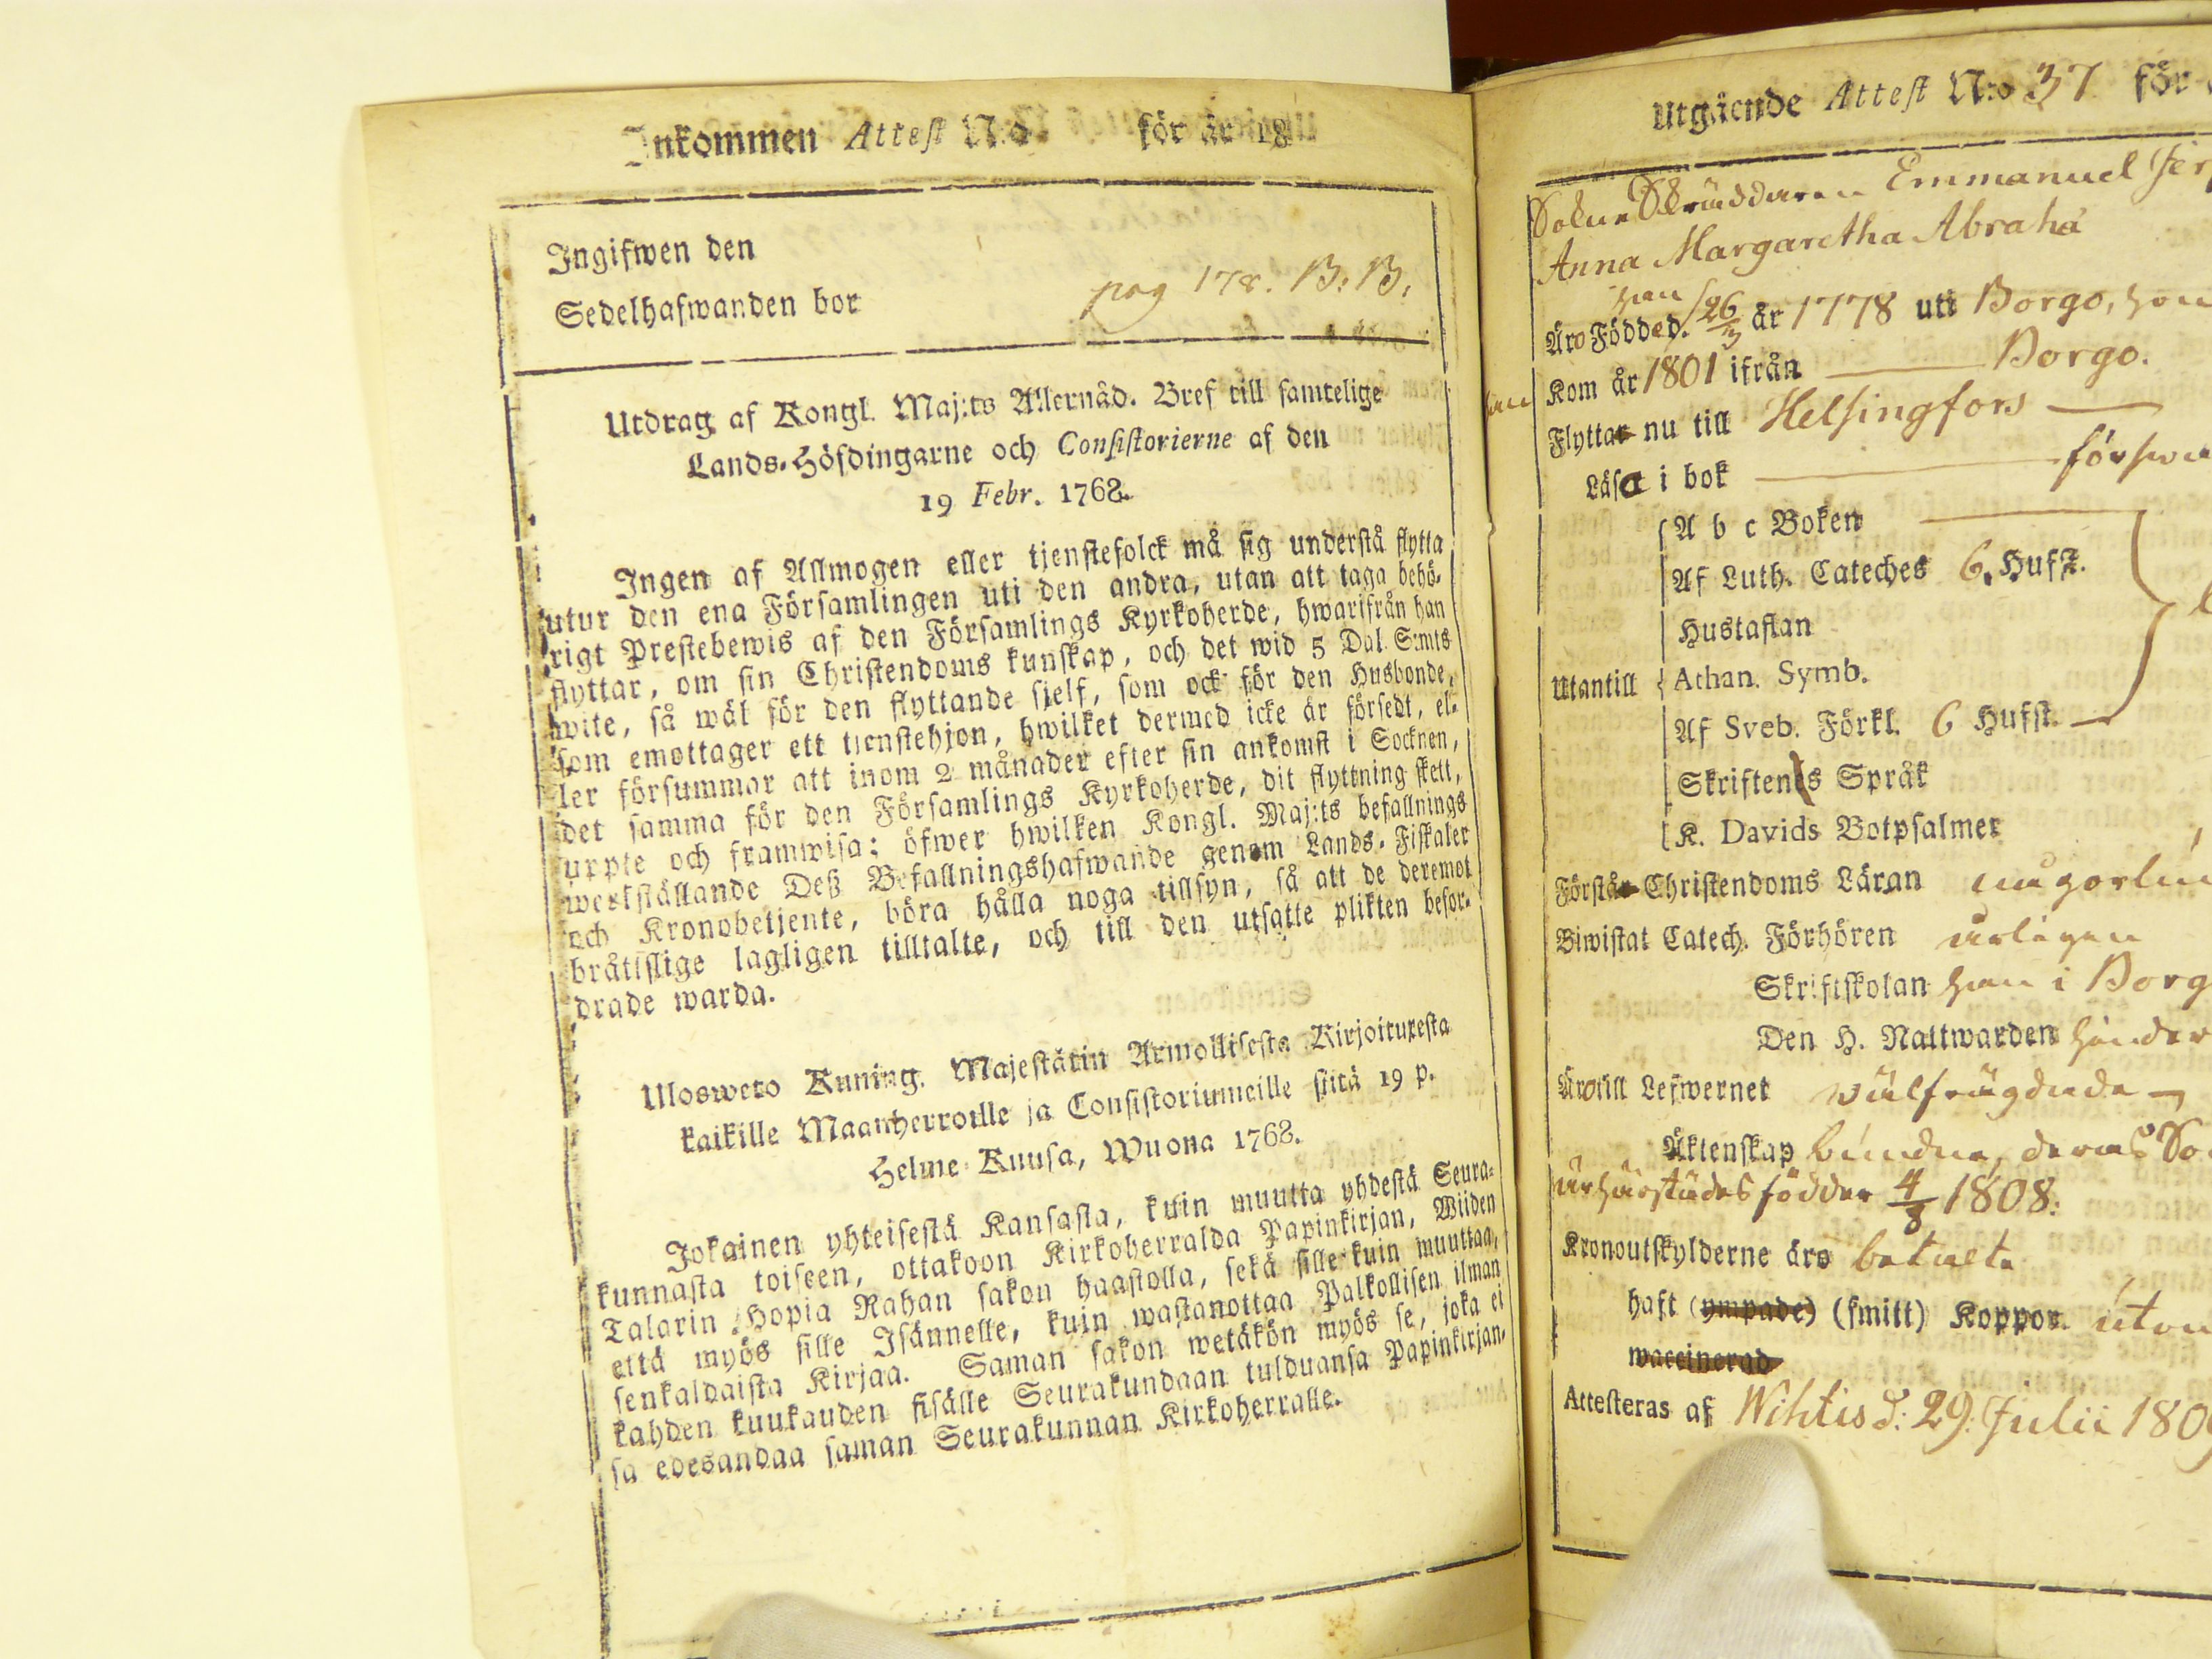 Inkommen Attest N:o för år 18
Ingifwen den
Sedelhafwanden bor
pag 178. B. B.
Utdrag af Kongl. Maj:ts Allernåd. Bref till samtelige
Lands-Höfdingarne och Consistorierne af den
19 Febr. 1768.
Ingen af Allmogen eller tjenstefolck må sig understå flytta
utur den ena Församlingen uti den andra, utan att taga behö-
rigt Prestebewis af den Församlings Kyrkoherde, hwarifrån han
flyttar, om sin Christendoms kunskap, och det wid 5 Dal. S:mts
wite, så wäl för den flyttande sjelf, som ock för den Husbonde,
som emottager ett tjenstehjon, hwilket dermed icke är försedt, el-
ler försummar att inom 2 månader efter sin ankomst i Socknen,
det samma för den Församlings Kyrkoherde, dit flyttning skett,
uppte och framwisa; öfwer hwilken Kongl. Maj:ts befallnings
werkställande Deß Befallningshafwande genom Lands-Fiskaler
och Kronobetjente, böra hålla noga tillsyn, så att de deremot
bråtislige lagligen tilltalte, och till den utsatte plikten befor-
drade warda.
Ulosweto Kuning. Majestätin Armollisesta Kirjoituxesta
kaikille Maanherroille ja Consistoriumeille siitä 19 p.
Helme-Kuusa, Wuona 1768.
Jokainen yhteisestä Kansasta, kuin muutta yhdestä Seura-
kunnasta toiseen, ottakoon Kirkoherralda Papinkirjan, Wiiden
Talarin Hopia Rahan sakon haastolla, sekä sille kuin muuttaa,
että myös sille Isännelle, kuin wastanottaa Palkollisen ilman
senkaldaista Kirjaa. Saman sakon wetäkön myös se, joka ei
kahden kuukauden sisälle Seurakundaan tulduansa Papinkirjan-
sa edesandaa saman Seurakunnan Kirkoherralle.
Utgående Attest N:o 37 för
Sokne Skräddaren Emmanuel
Anna Margaretha Abrahā
han
Äro Födde d. 26/3 år 1778 uti Borgo, hon
Kom år 1801 ifrån Borgo.
Flytta nu till Helsingfors
Läsa i bok
A b c Boken
Af Luth. Cateches 6. Hufst.
Hustaflan
Utantill Athan. Symb.
Af Sveb. Förkl. 6 Hufst.
Skriftenes Språk
K. Davids Botpsalmer
Förstå Christendoms Läran
Biwistat Catech. Förhören årligen
Skriftskolan han i Borg
Den H. Nattwarden
Äro till Lefwernet wälfrägdade
Äktenskap bundne, deras
är härstädes födder 4/3 1808.
Kronoutskylderne äro betalte
haft (ympade) (smitt) Koppor. utom
waccinerad
Attesteras af Wihtis d: 29. Julii 1809